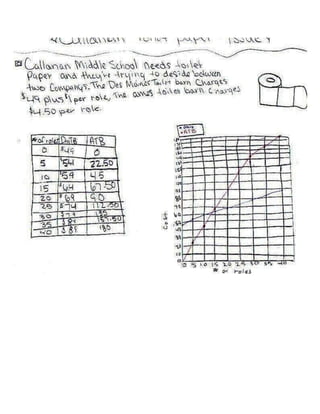 Callanan toilet paper issue
Callanan Middle School needs toilet
Paper and they're trying to deside between
two Companys. The Des Moines Toilet barn Charges
$49 plus $1 per role. The ames toilet barn charges
$4.50 per role.
# of roles DMTB ATB
0 $49 0
5 $54 22.50
10 $59 45
15 $64 67.50
20 $69 90
25 $74 112.50
30 $79 135
35 $84 157.50
40 $89 180
ATB
Cost
0 5 10 15 20 25 30 35 40
# of roles